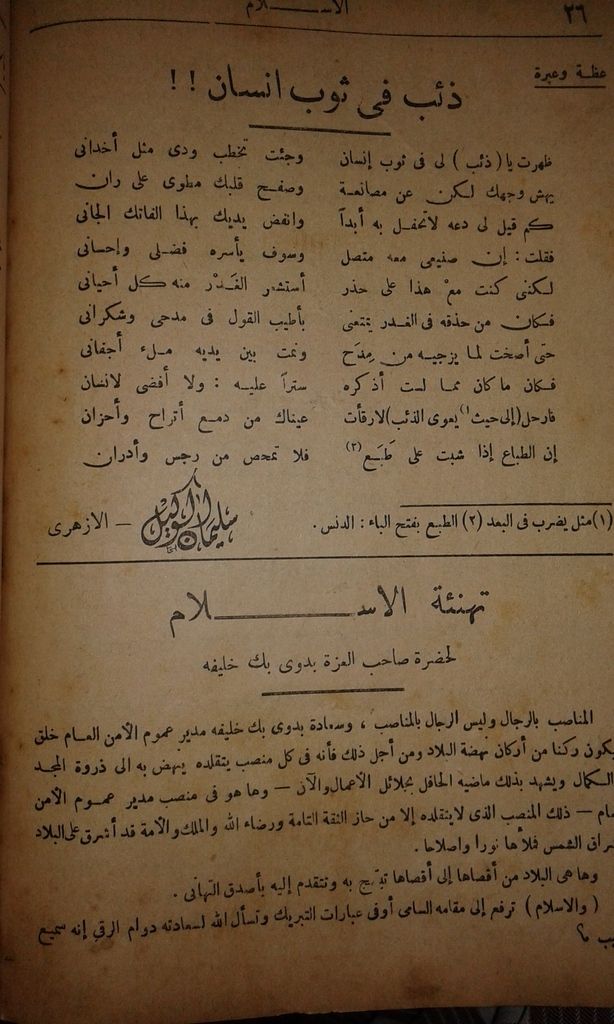 ٢٦
الاســـلام
عظة وعبرة
ذئب في ثوب انسان !!
ظهرت يا ( ذئب ) لى فى ثوب إنسان وجئت تخطب ودى مثل أخدانى
يهش وجهك لكن عن مصانعة وصفح قلبك مطوى على ران
كم قيل لى دعه لا تحفل به أبداً وانفض يديك بهذا الفاتك الجانى
فقلت : إن صنيعى معه متصل وسوف يأسره فضلى وإحسانى
لكننى كنت مع هذا على حذر أستشعر الغَدْر منه كل أحيانى
فكان من حذقه فى الغدر يمتعنى بأطيب القول فى مدحى وشكرانى
حتى أصخت لما يزجيه من مِدَح ونمت بين يديه ملء أجفانى
فكان ما كان مما لست أذكره ستراً عليه : ولا أفضى لانسان
فارحل (إلى حيث(١) يعوى الذئب) لا رقأت عيناك من دمع أتراح وأحزان
إن الطباع إذا شبت على طَبَع(٢) فلا تمحص من رجس وأدران
(١) مثل يضرب فى البعد (٢) الطبع بفتح الباء : الدنس .
سليمان الوكيل — الازهرى
تهنئة الاســـلام
لحضرة صاحب العزة بدوى بك خليفه
المناصب بالرجال وليس الرجال بالمناصب ، وسعادة بدوى بك خليفه مدير عموم الأمن العام خلق
يكون ركنا من أركان نهضة البلاد ومن أجل ذلك فأنه فى كل منصب يتقلده ينهض به الى ذروة المجد
الكمال ويشهد بذلك ماضيه الحافل بجلائل الأعمال والآن — وها هو فى منصب مدير عموم الأمن
— ذلك المنصب الذى لا يتقلده إلا من حاز الثقة التامة ورضاء الله والملك والأمة قد أشرق على البلاد
الشمس فملأها نورا واصلاحا .
وها هى البلاد من أقصاها إلى أقصاها تبتهج به وتتقدم إليه بأصدق التهانى .
( والاسلام ) ترفع إلى مقامه السامى أوفى عبارات التبريك وتسأل الله لسعادته دوام الرقي إنه سميع